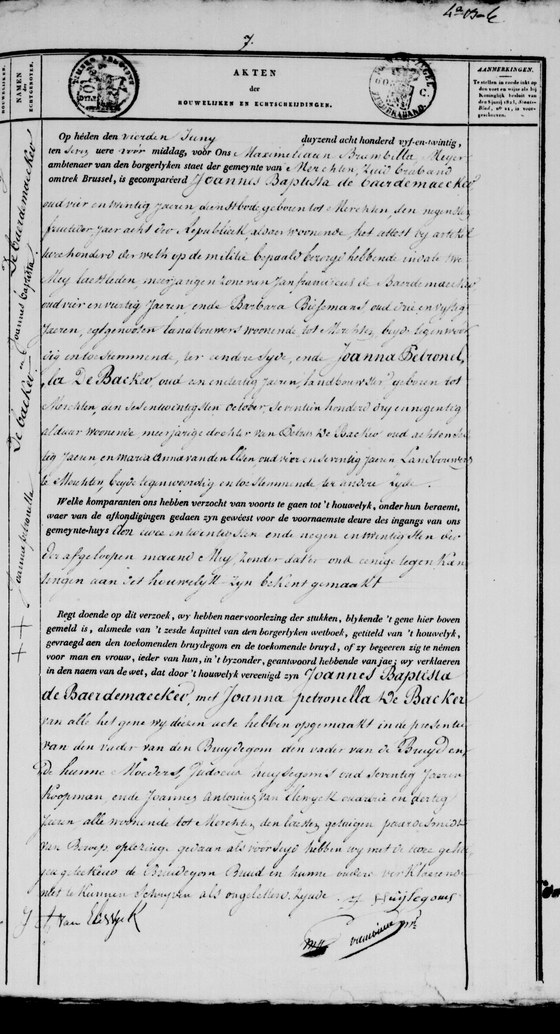 7.
AKTEN
der
HOUWELYKEN EN ECHTSCHEIDINGEN.
AANMERKINGEN.
NAMEN
der
ECHTGENOTEN.
De Baerdemaecker
Joannes baptista
en
De backer
Joanna petronella
Op héden den vierden Juny duyzend acht honderd vyf-en-twintig,
ten seven uere vóór middag, voor Ons Maximeliaan Brambilla, Meyer
ambtenaer van den borgerlyken staet der gemeynte van Merchten, Zuid braband
omtrek Brussel, is gecompareérd Joannes Baptista de baerdemaecker
oud vier en twintig Jaeren, dienstbode, geboren tot Merchten, den negensten
fructidor Jaer acht der Republiek, aldaer woonende, het attest by artikel
twee honderd der weth op de militie bepaald bezorgd hebbende in date
Mey laetsleden, meerjarigen zone van Jan franciscus de Baerdemaecker
oud vier en vertig Jaeren, ende Barbara Buysmans oud drie en vyftig
Jaeren, egtgenooten landbouwers woonende tot Merchten, beyde tegenwoor-
dig en toestemmende, ter eendre syde, ende Joanna Petronel
la De Backer, oud een en dertig Jaeren, landbouwster geboren tot
Merchten, den sesentwintigsten october, seventien honderd dry en negentig
aldaer woonende, meerjarige dochter van Petrus De Backer oud acht en
tig Jaeren en maria Anna van den Elsen, oud vier en seventig Jaeren Landbouwers
te Merchten, beyde tegenwoordig en toestemmende ter andere zyde.
Welke komparanten ons hebben verzocht van voorts te gaen tot 't houwelyk, onder hun beraemt,
waer van de afkondigingen gedaen zyn geweést voor de voornaemste deure des ingangs van ons
gemeynte-huys den twee en twentesten ende negen en twentigsten der
der afgeloopen maand Mey, zonder dat er ons eenige tegen kan
tingen aan het houwelyk zyn bekent gemaakt
Regt doende op dit verzoek, wy hebben naervoorlezing der stukken, blykende 't gene hier boven
gemeld is, alsmede van 't zesde kapittel van den borgerlyken wetboek, getiteld van 't houwelyk,
gevraegd aen den toekomenden bruydegom en de toekomende bruyd, of zy begeeren zig te némen
voor man en vrouw, ieder van hun, in 't byzonder, geantwoord hebbende van jae; wy verklaeren
in den naem van de wet, dat door 't houwelyk vereenigd zyn Joannes Baptista
de Baerdemaecker, met Joanna petronella De Backer
van alle het gene wy diezen acte hebben opgemaakt in de presentie
van den vader van den Bruydegom den vader van de Bruyd en
De hunne Moeders, Judocus huysegoms oud seventig Jaeren
Koopman, ende Joannes Antonius van Elewyck oud drie en dertig
Jaeren alle woonende tot Merchten, den laesten getuigen, paerdesmidt
van Beroep, oplezinge gedaan als voorseyd hebben wy met de twee getui
gen geteekend de Bruidegom Bruid en hunne oudere verklaerende
niet te kunnen schryven als ongeletterd zynde. Huijsegoms
J A van Elewyck